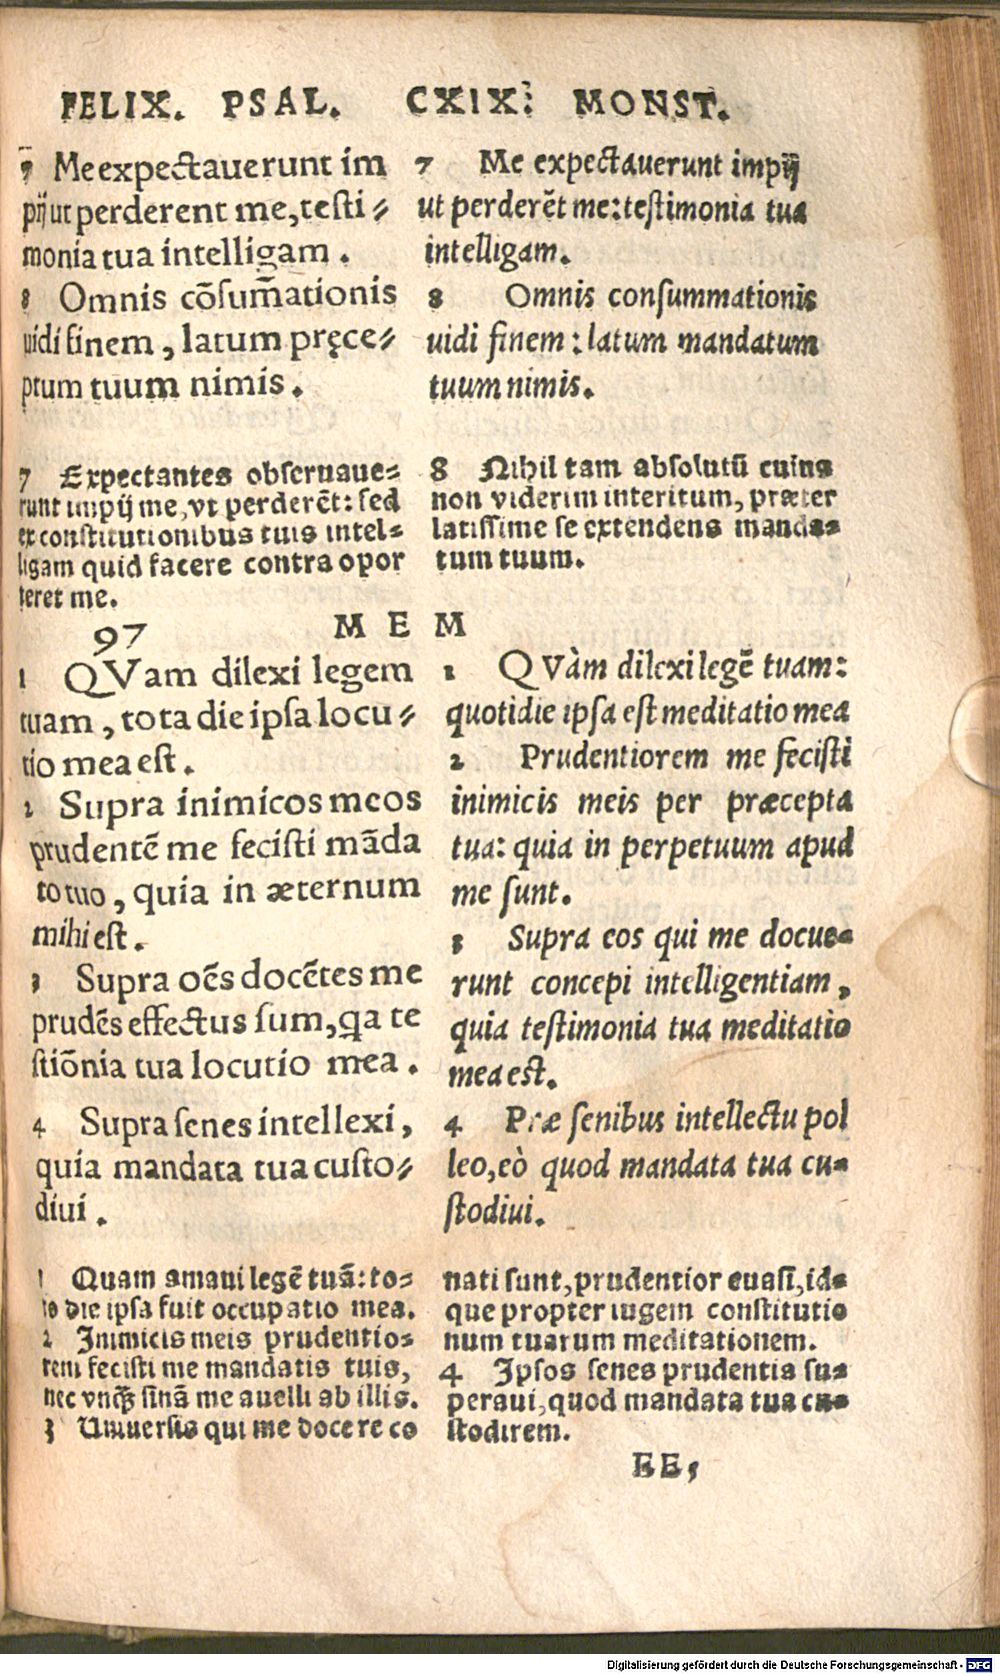 FELIX. PSAL. CXIX. MONST.
7 Me expectauerunt im
pij ut perderent me, testi-
monia tua intelligam.
8 Omnis cõsum̃ationis
uidi finem, latum pręce-
ptum tuum nimis.
7 Me expectauerunt impij
ut perderẽt me: testimonia tua
intelligam.
8 Omnis consummationis
uidi finem: latum mandatum
tuum nimis.
7 Expectantes obseruaue-
runt impij me, vt perderẽt: sed
ex constitutionibus tuis intel-
ligam quid facere contra opor
teret me.
8 Nihil tam absolutũ cuius
non viderim interitum, præter
latissime se extendens manda-
tum tuum.
97 MEM
1 QVam dilexi legem
tuam, tota die ipsa locu-
tio mea est.
2 Supra inimicos meos
prudentẽ me fecisti mãda
to tuo, quia in æternum
mihi est.
3 Supra oẽs docẽtes me
prudẽs effectus sum, qa te
stiõnia tua locutio mea.
4 Supra senes intellexi,
quia mandata tua custo-
diui.
1 QVàm dilexi legẽ tuam:
quotidie ipsa est meditatio mea
2 Prudentiorem me fecisti
inimicis meis per præcepta
tua: quia in perpetuum apud
me sunt.
3 Supra eos qui me docue-
runt concepi intelligentiam,
quia testimonia tua meditatio
mea est.
4 Præ senibus intellectu pol
leo, eò quod mandata tua cu-
stodiui.
1 Quam amaui legẽ tuã: to-
to die ipsa fuit occupatio mea.
2 Inimicis meis prudentio-
rem fecisti me mandatis tuis,
nec vnq̃ sinã me auelli ab illis.
3 Uniuersis qui me docere co
nati sunt, prudentior euasi, id-
que propter iugem constitutio
num tuarum meditationem.
4 Ipsos senes prudentia su-
peraui, quod mandata tua cu-
stodirem.
EE,
Digitalisierung gefördert durch die Deutsche Forschungsgemeinschaft - DFG